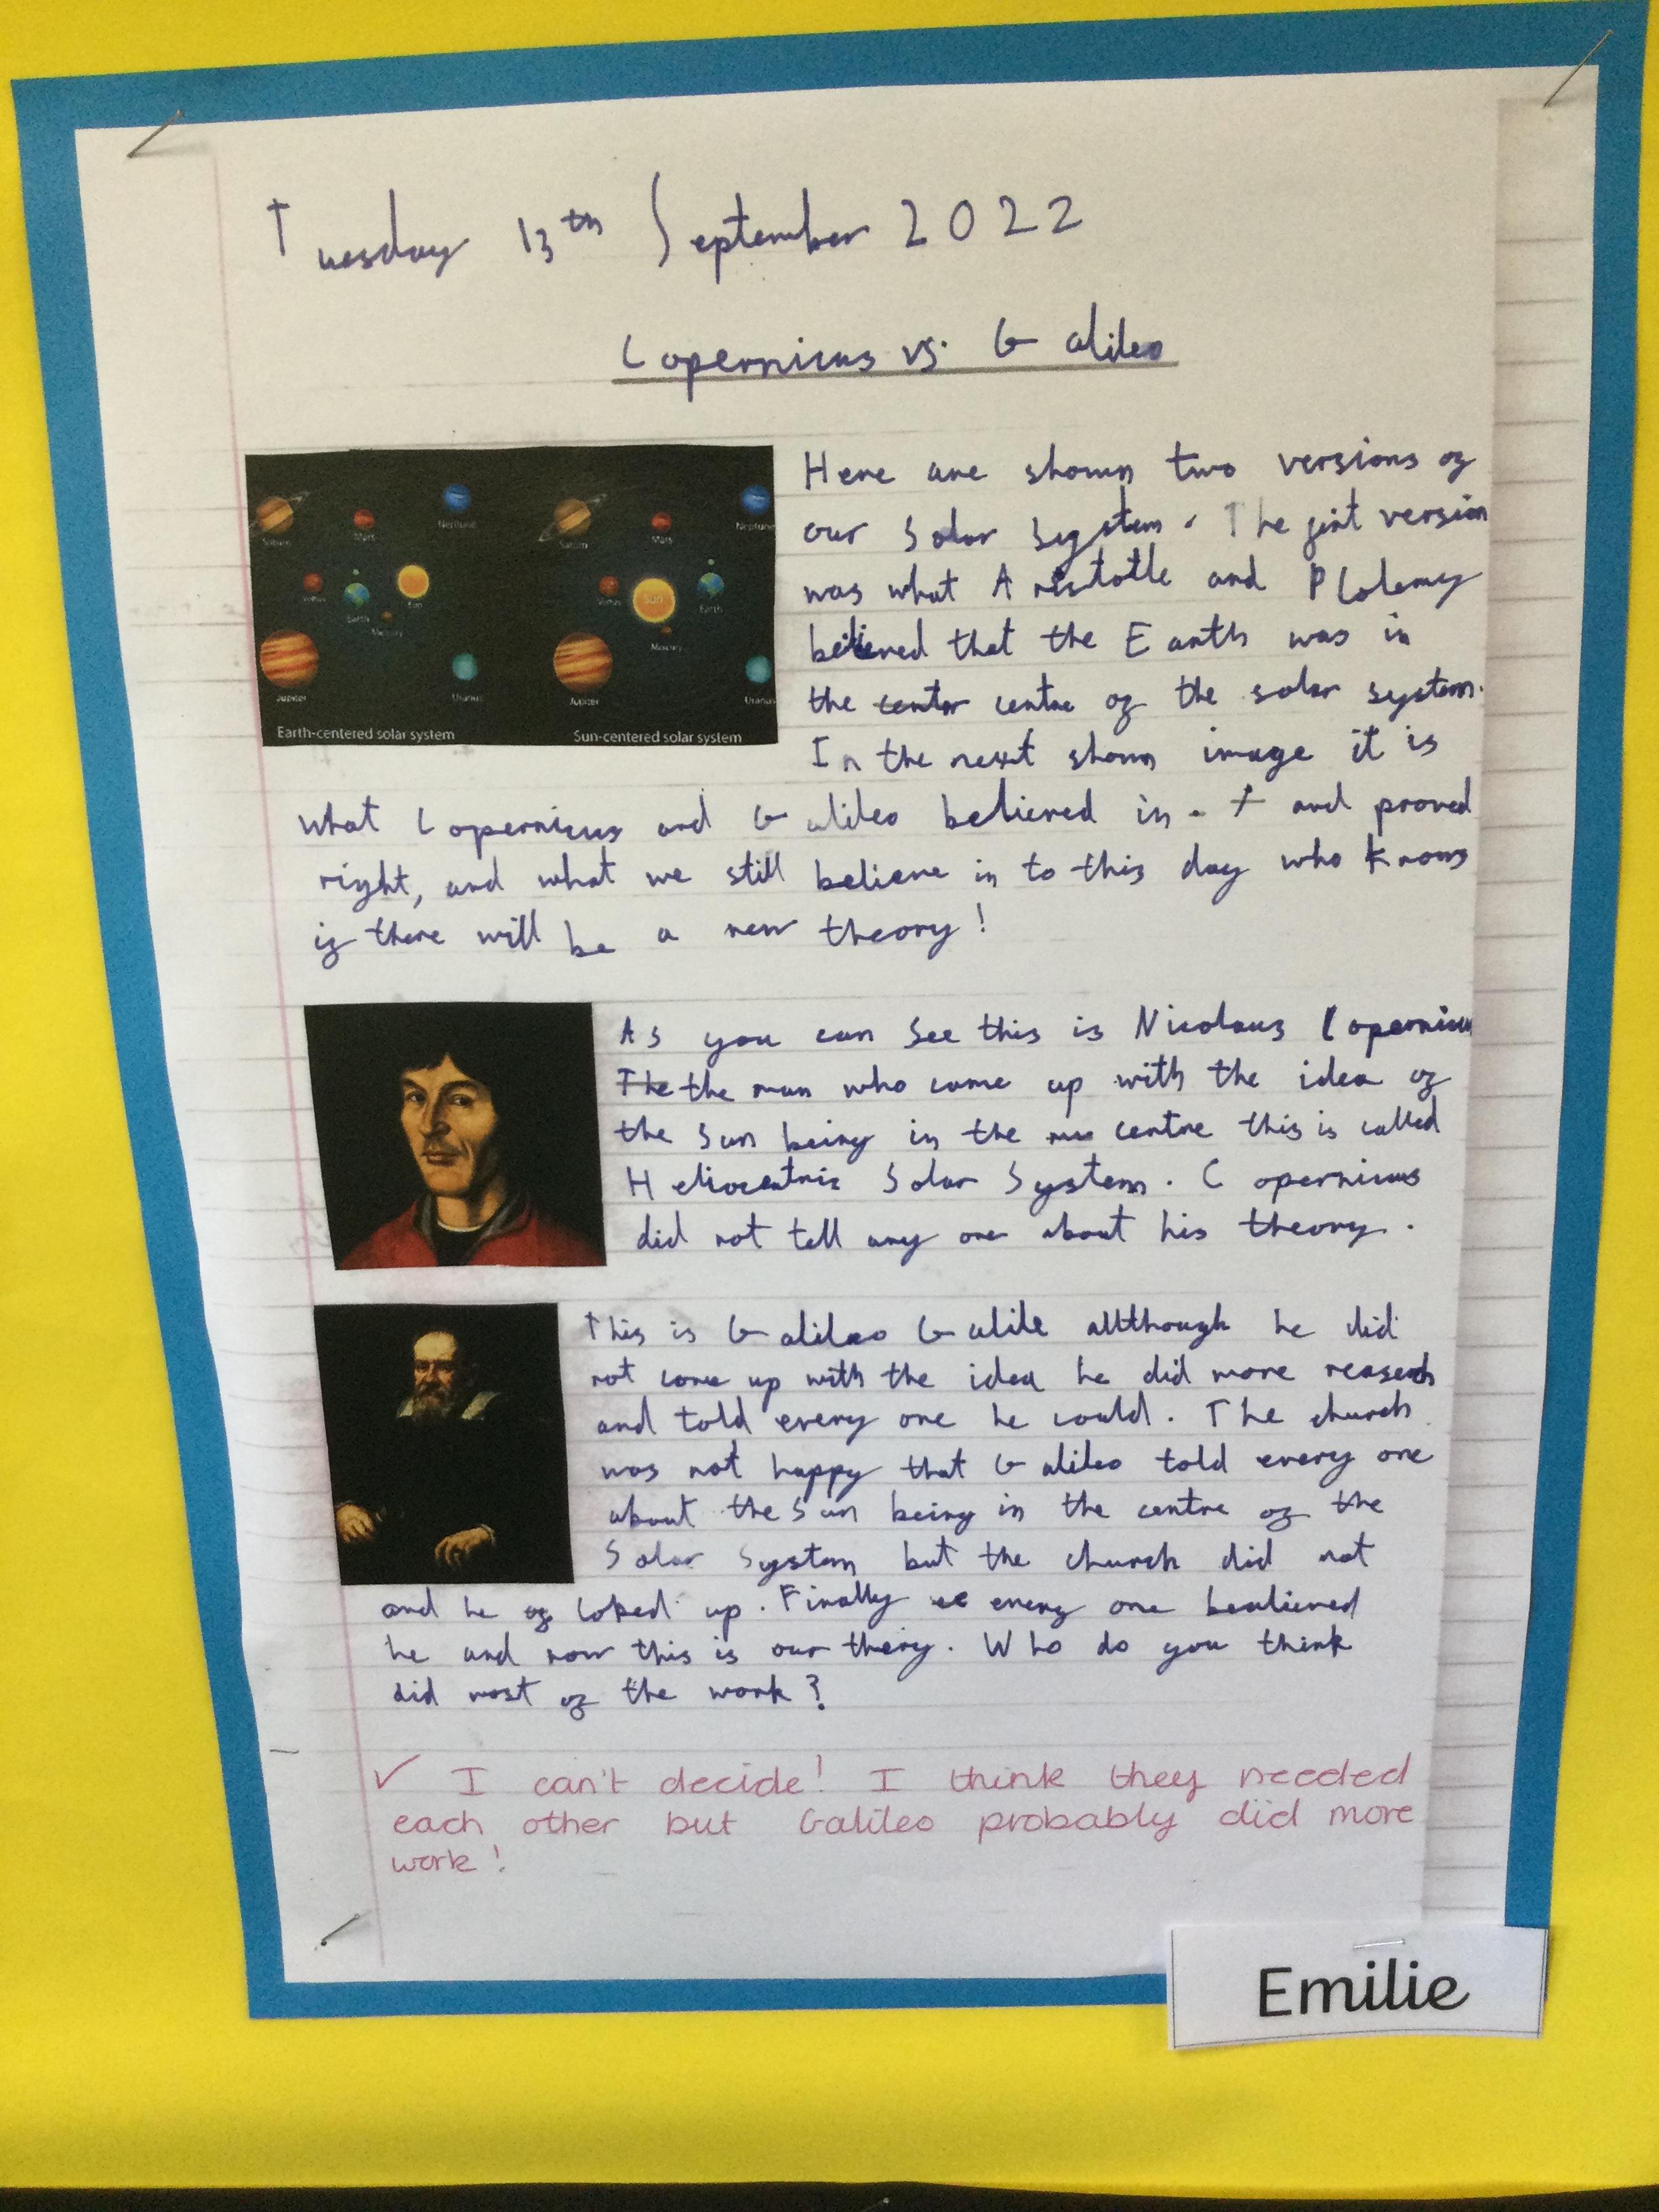 Tuesday 13th September 2022
Copernicus vs. Galileo
Saturn
Mars
Neptune
Venus
Earth
Sun
Mercury
Jupiter
Uranus
Earth-centered solar system
Saturn
Mars
Neptune
Venus
Sun
Earth
Mercury
Jupiter
Uranus
Sun-centered solar system
Here are shown two versions of
our Solar System. The first version
was what Aristotle and Ptolemy
believed that the Earth was in
the center centre of the solar system.
In the next shown image it is
what Copernicus and Galileo believed in. + and proved
right, and what we still believe in to this day who knows
if there will be a new theory!
As you can See this is Nicolaus Copernicus
The the man who came up with the idea of
the Sun being in the centre this is called
Heliocentric Solar System. Copernicus
did not tell any one about his theory.
This is Galileo Galile allthough he did
not come up with the idea he did more reaserch
and told every one he could. The church
was not happy that Galileo told every one
about the Sun being in the centre of the
Solar System but the church did not
and he of loked up. Finally every one bealieved
he and now this is our thery. Who do you think
did most of the work?
✓ I can't decide! I think they needed
each other but Galileo probably did more
work!
Emilie